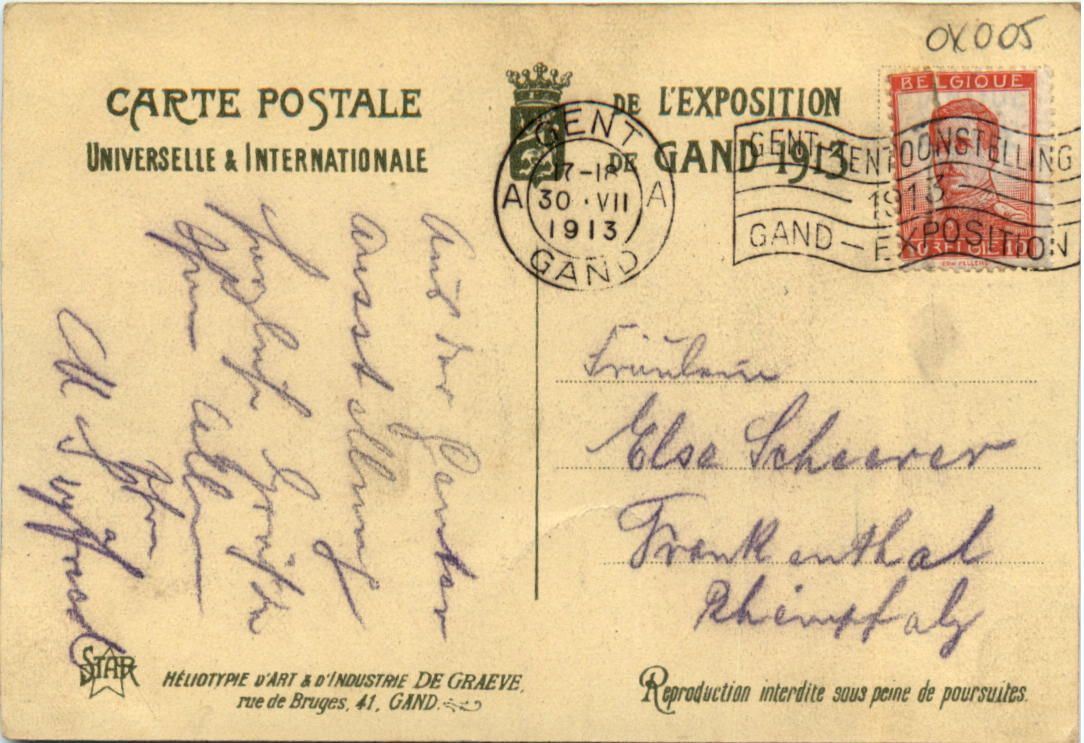 OX005
CARTE POSTALE
UNIVERSELLE & INTERNATIONALE
DE L'EXPOSITION
DE GAND 1913
GENT
A 17-18 A
30·VII
1913
GAND
BELGIQUE
BELGIË 10
GENT-TENTOONSTELLING
1913
GAND-EXPOSITION
Aus der Genter
Ausstellung
herzliche Grüße
Ihnen allen
Fräulein
Else Scheerer
Frankenthal
Rheinpfalz
STAR
HÉLIOTYPIE D'ART & D'INDUSTRIE DE GRAEVE,
rue de Bruges, 41, GAND.
Reproduction interdite sous peine de poursuites.